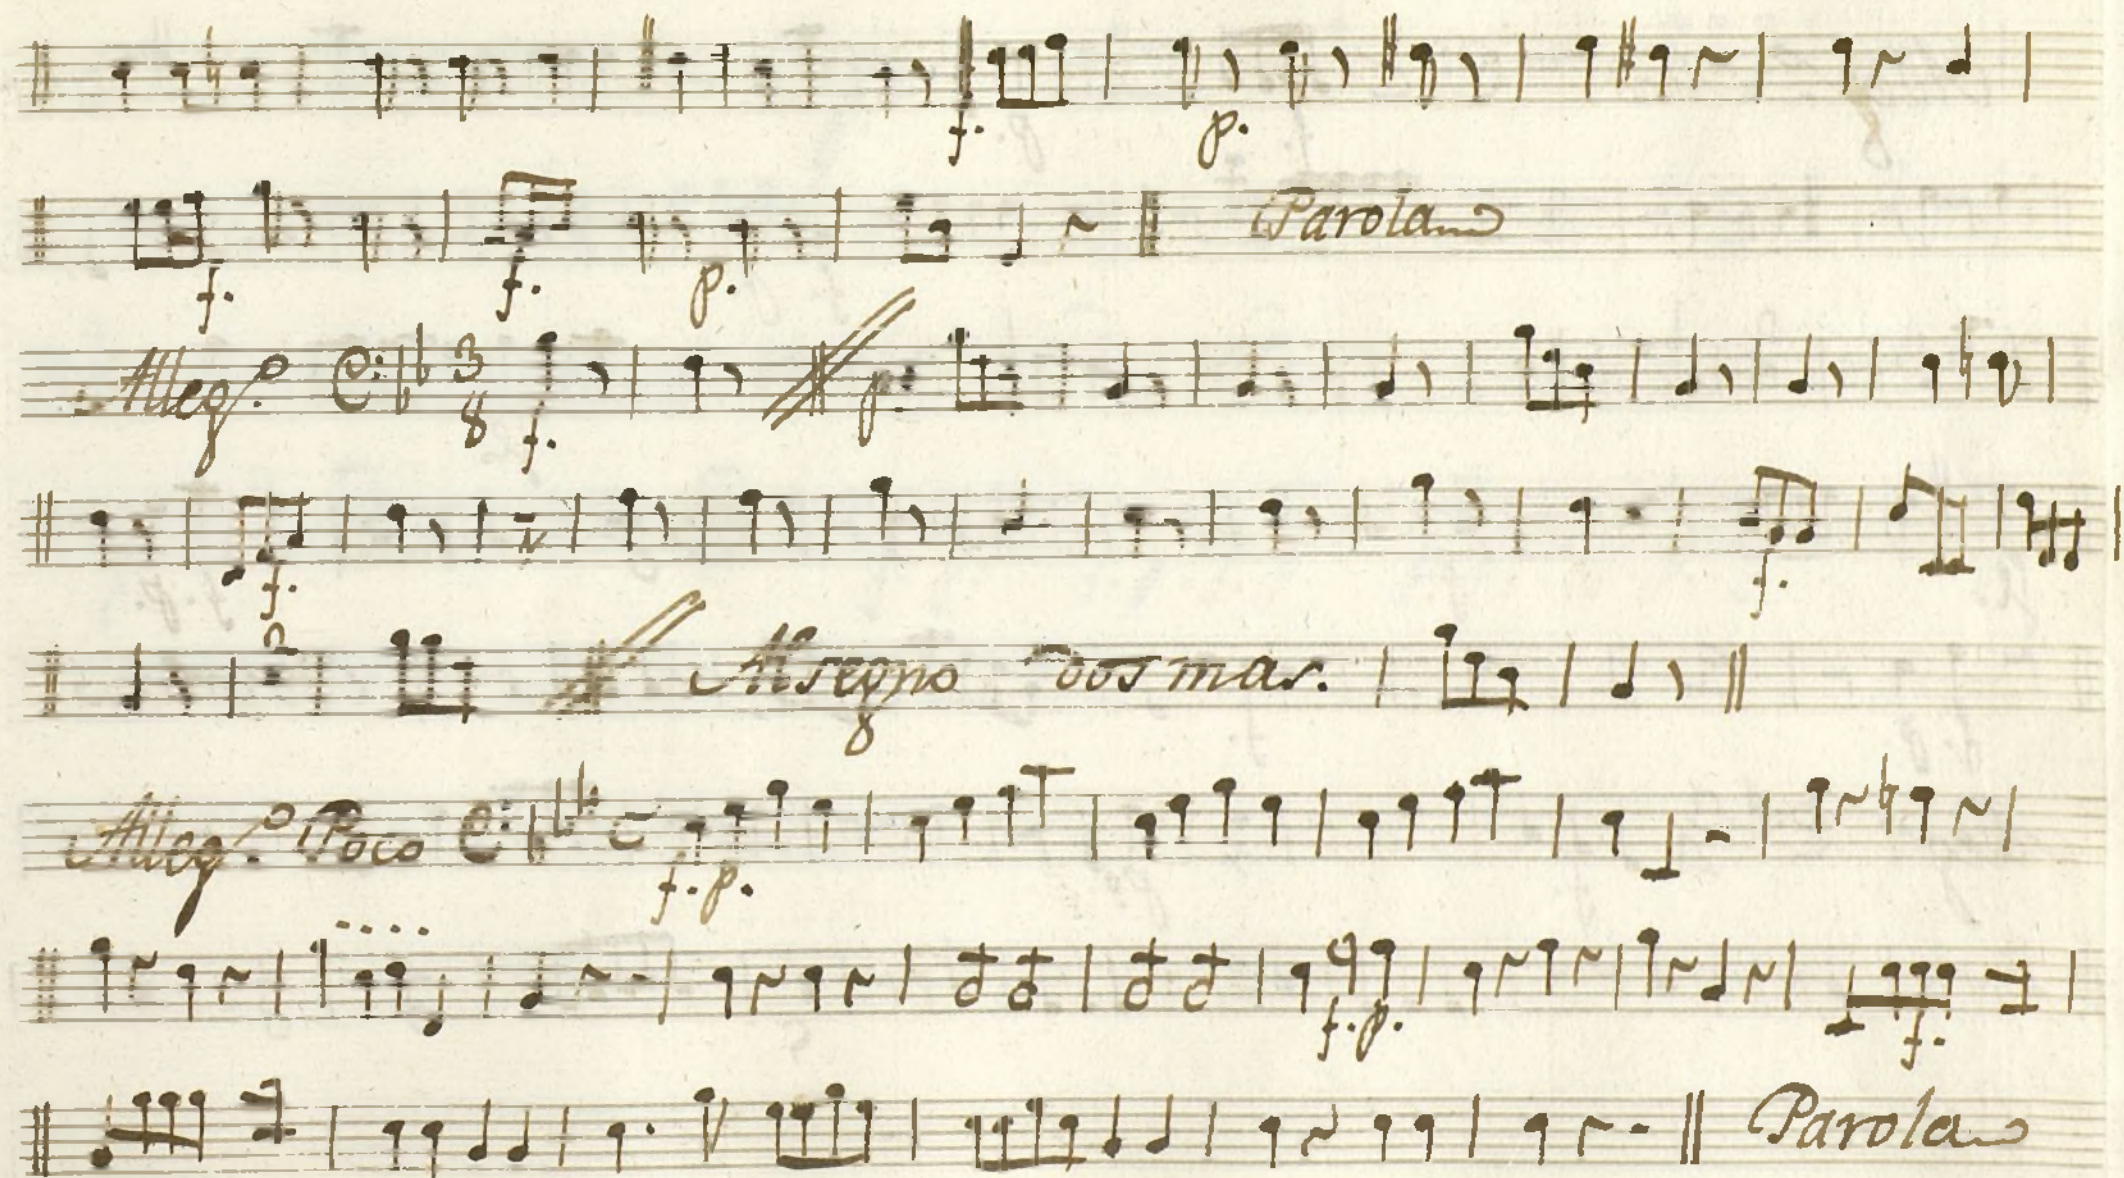 f. p.
f. f. p. Parola
Alleg.º 3 8 f. p.
f. f.
2 Alsegno dos mas.
Alleg.º Poco f. p.
f. p. f.
Parola